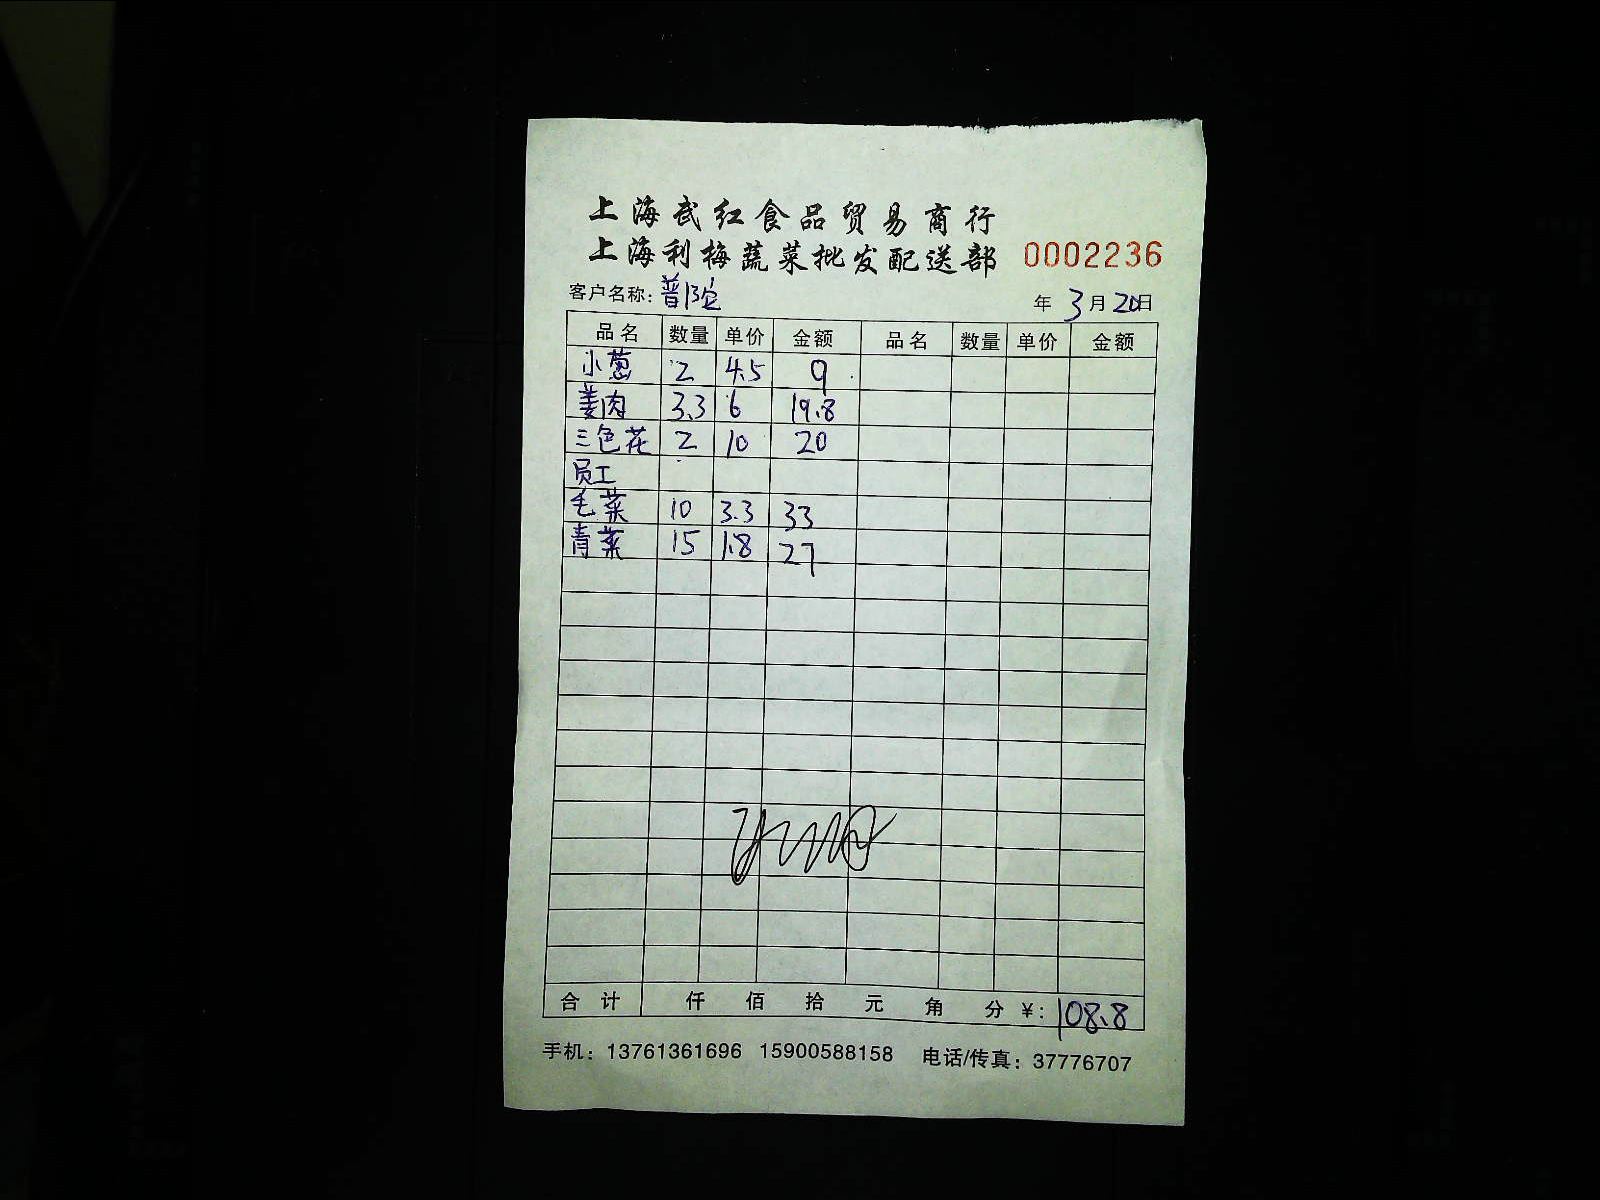 上海武红食品贸易商行
上海利梅蔬菜批发配送部 0002236
客户名称: 普陀 年 3月 20日
品名 数量 单价 金额 品名 数量 单价 金额
小葱 2 4.5 9
姜肉 3.3 6 19.8
三色花 2 10 20
员工
毛菜 10 3.3 33
青菜 15 1.8 27
合计 仟 佰 拾 元 角 分 ¥: 108.8
手机: 13761361696 15900588158 电话/传真: 37776707